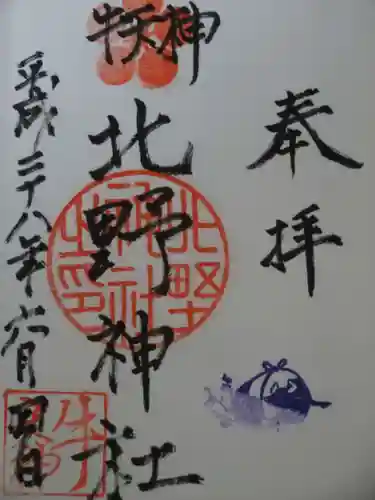 奉拝
牛天神
北野神社
北野神社之印
平成二十八年六月日